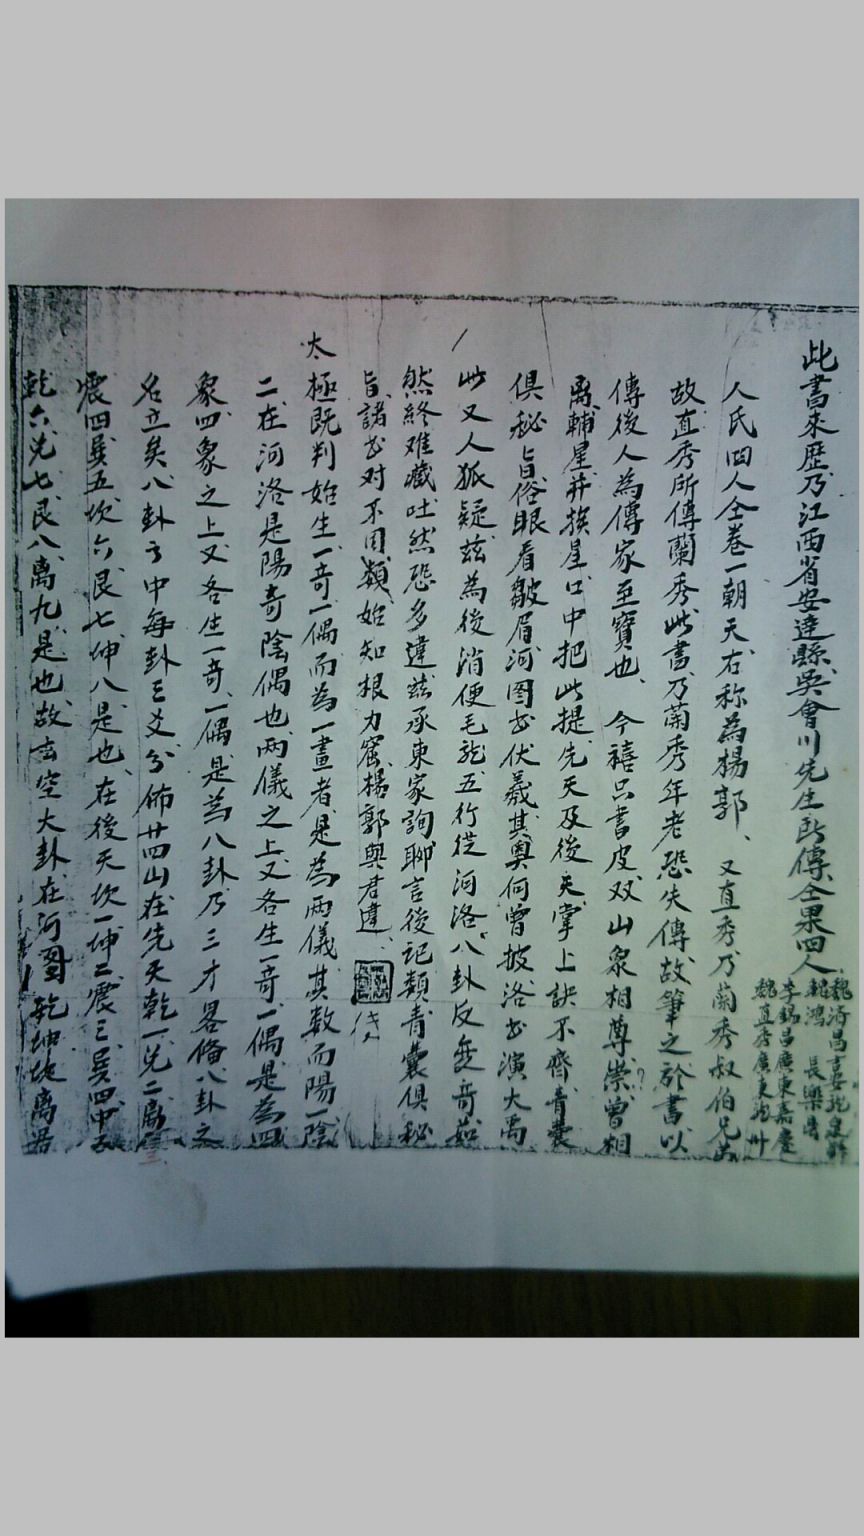 此書來歷乃江西省安逹縣吳會川先生所傳仝果四人
魏濟昌
魏鴻 長樂
李錦昌廣東嘉慶
魏直秀廣東 州
人氏四人仝卷一朝天右称為楊郭、又直秀乃蘭秀叔伯兄
故直秀所傳蘭秀此書乃蘭秀年老恐失傳故筆之於書以
傳後人為傳家至寶也、今禧只書皮双山衆相尊崇曾相
輔星并挨星口中把此提先天及後天掌上訣不齊青囊
俱秘旨俗眼看皺眉河图书伏羲其奧何曾披洛书演大禹
此又人狐疑茲為後消便毛龍五行從河洛八卦反變奇茹
然終难藏吐然恐多違茲承東家詢聊言後记類青囊俱秘
旨諸书对不用類始知根力窟楊郭與君違
太極既判始生一奇一偶而為一畫者是為两儀其数而陽一陰
二在河洛是陽奇陰偶也两儀之上又各生一奇一偶是為四
象四象之上又各生一奇一偶是為八卦乃三才畧備八卦之
名立矣八卦之中每卦三爻分佈廿四山在先天乾一兑二离
震四巽五坎六艮七坤八是也在後天坎一坤二震三巽四中五
乾六兑七艮八离九是也故玄空大卦在河图乾坤坎离